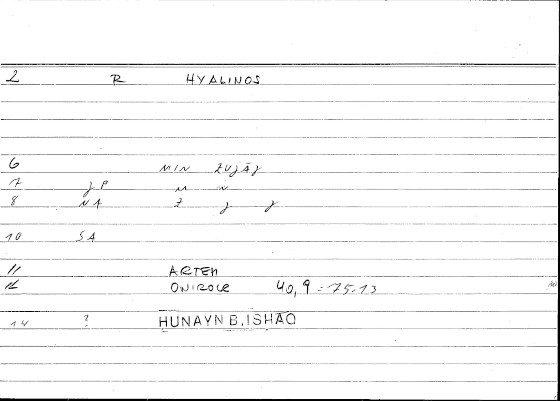 2 R HYALINOS
6 MIN ZUJĀJ
7 JP M N
8 NA Z J J
10 SA
11 ARTEM
12 ONIROCR 40,9 = 75.13
14 ? HUNAYN B. ISHAQ